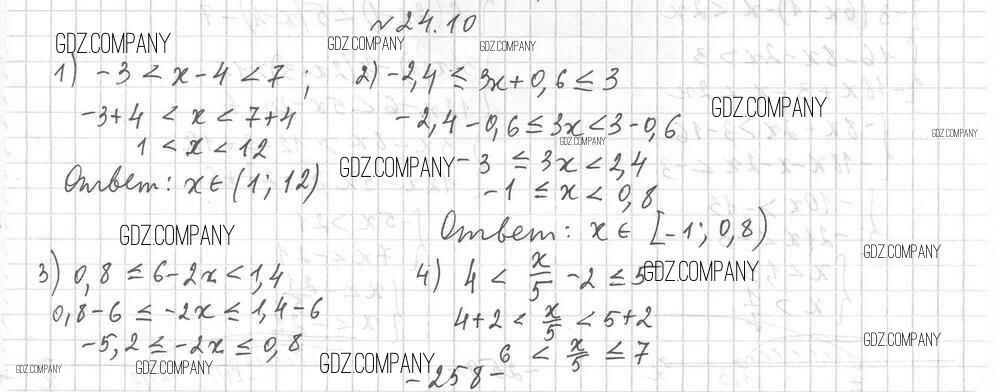 № 24.10
GDZ.COMPANY
GDZ.COMPANY
GDZ.COMPANY
1) -3 < x - 4 < 7 ;
-3+4 < x < 7+4
1 < x < 12
Ответ: x ∈ (1; 12)
2) -2,4 ≤ 3x + 0,6 ≤ 3
-2,4 - 0,6 ≤ 3x < 3 - 0,6
-3 ≤ 3x < 2,4
-1 ≤ x < 0,8
Ответ: x ∈ [-1; 0,8)
GDZ.COMPANY
GDZ.COMPANY
GDZ.COMPANY
GDZ.COMPANY
GDZ.COMPANY
3) 0,8 ≤ 6 - 2x < 1,4
0,8 - 6 ≤ -2x ≤ 1,4 - 6
-5,2 ≤ -2x ≤ 0,8
4) 4 < x/5 - 2 ≤ 5
4+2 < x/5 < 5+2
6 < x/5 ≤ 7
GDZ.COMPANY
GDZ.COMPANY
GDZ.COMPANY
GDZ.COMPANY
GDZ.COMPANY
GDZ.COMPANY
-258-